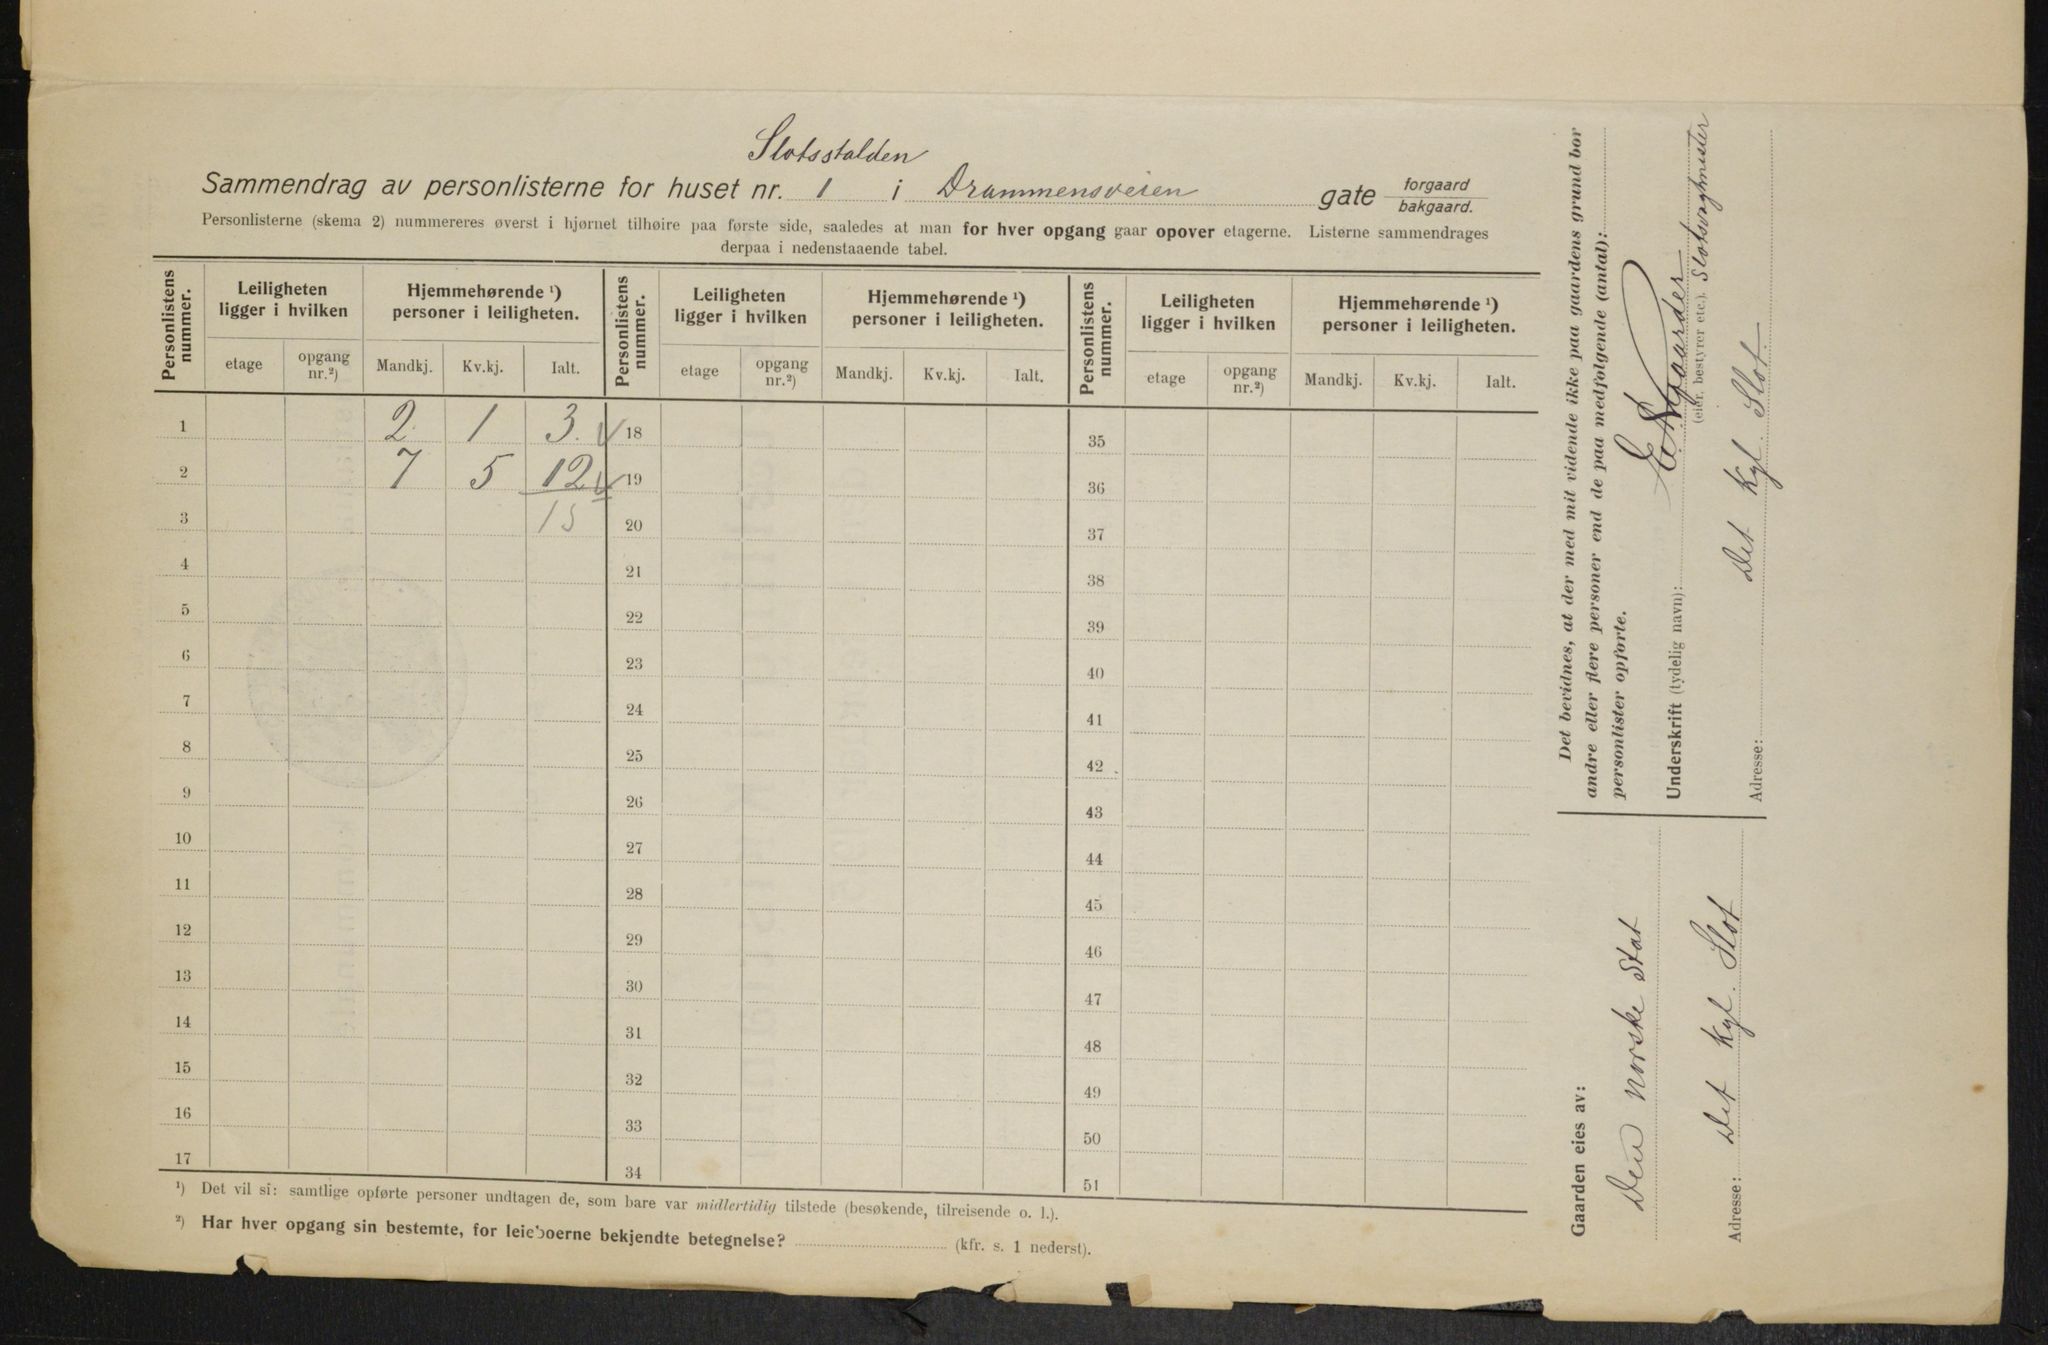 Slotsstalden
Sammendrag av personlisterne for huset nr. 1 i Drammensveien gate forgaard bakgaard.
Personlisterne (skema 2) nummereres øverst i hjørnet tilhøire paa første side, saaledes at man for hver opgang gaar opover etagerne. Listerne sammendrages
derpaa i nedenstaaende tabel.
Personlistens nummer. Leiligheten ligger i hvilken Hjemmehørende ¹) personer i leiligheten. Personlistens nummer. Leiligheten ligger i hvilken Hjemmehørende ¹) personer i leiligheten. Personlistens nummer. Leiligheten ligger i hvilken Hjemmehørende ¹) personer i leiligheten.
etage opgang nr.²) Mandkj. Kv.kj. Ialt. etage opgang nr.²) Mandkj. Kv.kj. Ialt. etage opgang nr.²) Mandkj. Kv.kj. Ialt.
1 2 1 3 18 35
2 7 5 12 19 36
3 15 20 37
4 21 38
5 22 39
6 23 40
7 24 41
8 25 42
9 26 43
10 27 44
11 28 45
12 29 46
13 30 47
14 31 48
15 32 49
16 33 50
17 34 51
¹) Det vil si: samtlige opførte personer undtagen de, som bare var midlertidig tilstede (besøkende, tilreisende o. l.).
²) Har hver opgang sin bestemte, for leieboerne bekjendte betegnelse? (kfr. s. 1 nederst).
Det bevidnes, at der med mit vidende ikke paa gaardens grund bor
andre eller flere personer end de paa medfølgende (antal):
personlister opførte.
Underskrift (tydelig navn):
(eier, bestyrer etc.). Slotsvagtmester
Adresse: Det Kgl. Slot.
Gaarden eies av:
Den norske Stat
Adresse: Det Kgl. Slot